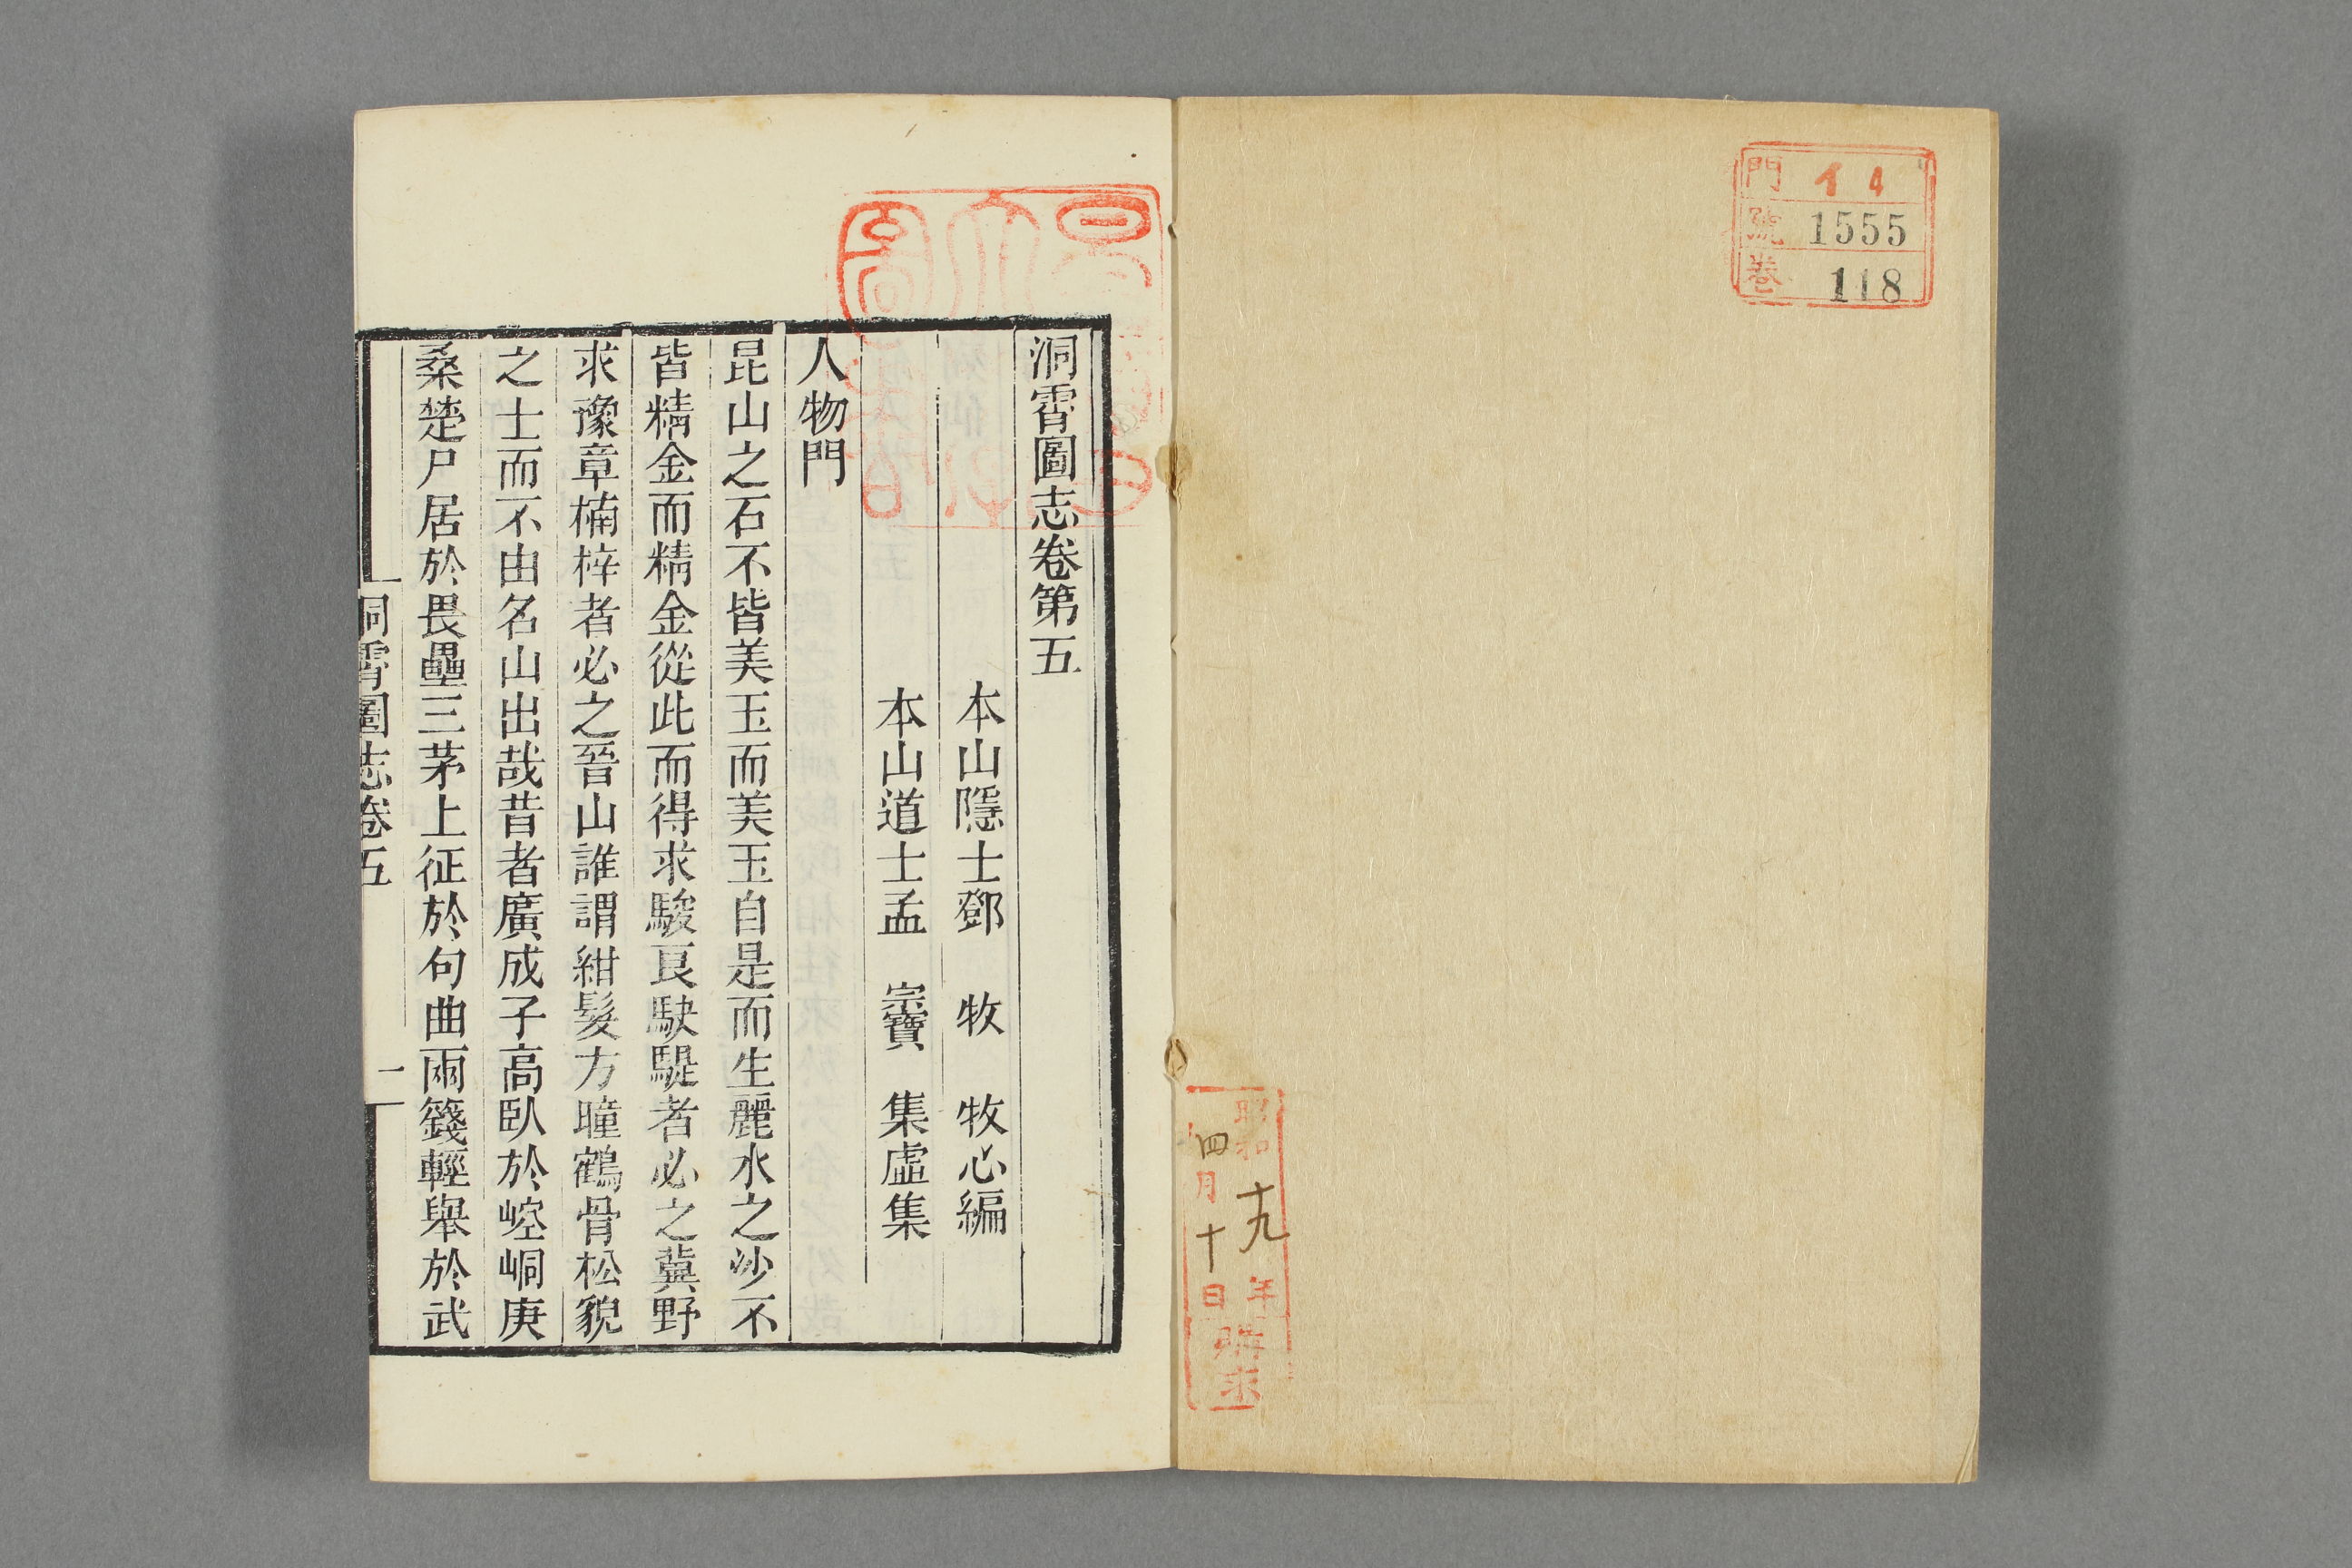 門 イ4
號 1555
卷 118
昭和十九年
四月十日
購求
洞霄圖志卷第五
本山隱士鄧 牧 牧心編
本山道士孟 宗寶 集虛集
人物門
昆山之石不皆美玉而美玉自是而生麗水之沙不
皆精金而精金從此而得求駿良駃騠者必之冀野
求豫章楠梓者必之晉山誰謂紺髮方瞳鶴骨松貌
之士而不由名山出哉昔者廣成子高臥於崆峒庚
桑楚尸居於畏壘三茅上征於句曲兩籛輕舉於武
洞霄圖志卷五
一